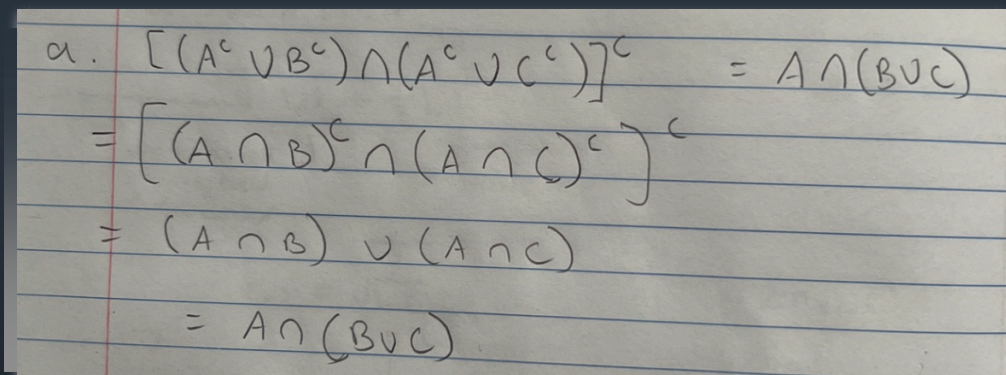 a. [(Aᶜ ∪ Bᶜ) ∩ (Aᶜ ∪ Cᶜ)]ᶜ = A ∩ (B ∪ C)
= [(A ∩ B)ᶜ ∩ (A ∩ C)ᶜ]ᶜ
= (A ∩ B) ∪ (A ∩ C)
= A ∩ (B ∪ C)